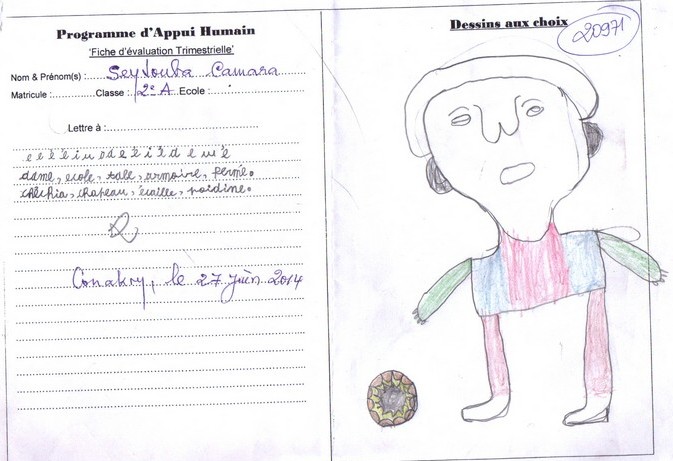 Programme d'Appui Humain
'Fiche d'évaluation Trimestrielle'
Nom & Prénom(s) :...... Seydouba Camara
Matricule :............Classe : 2e A Ecole :
Lettre à :
dame, ecole, sale, armoire, fermé.
chechia, chateau, écaille,
Conakry, le 27 juin 2014
Dessins aux choix
20971